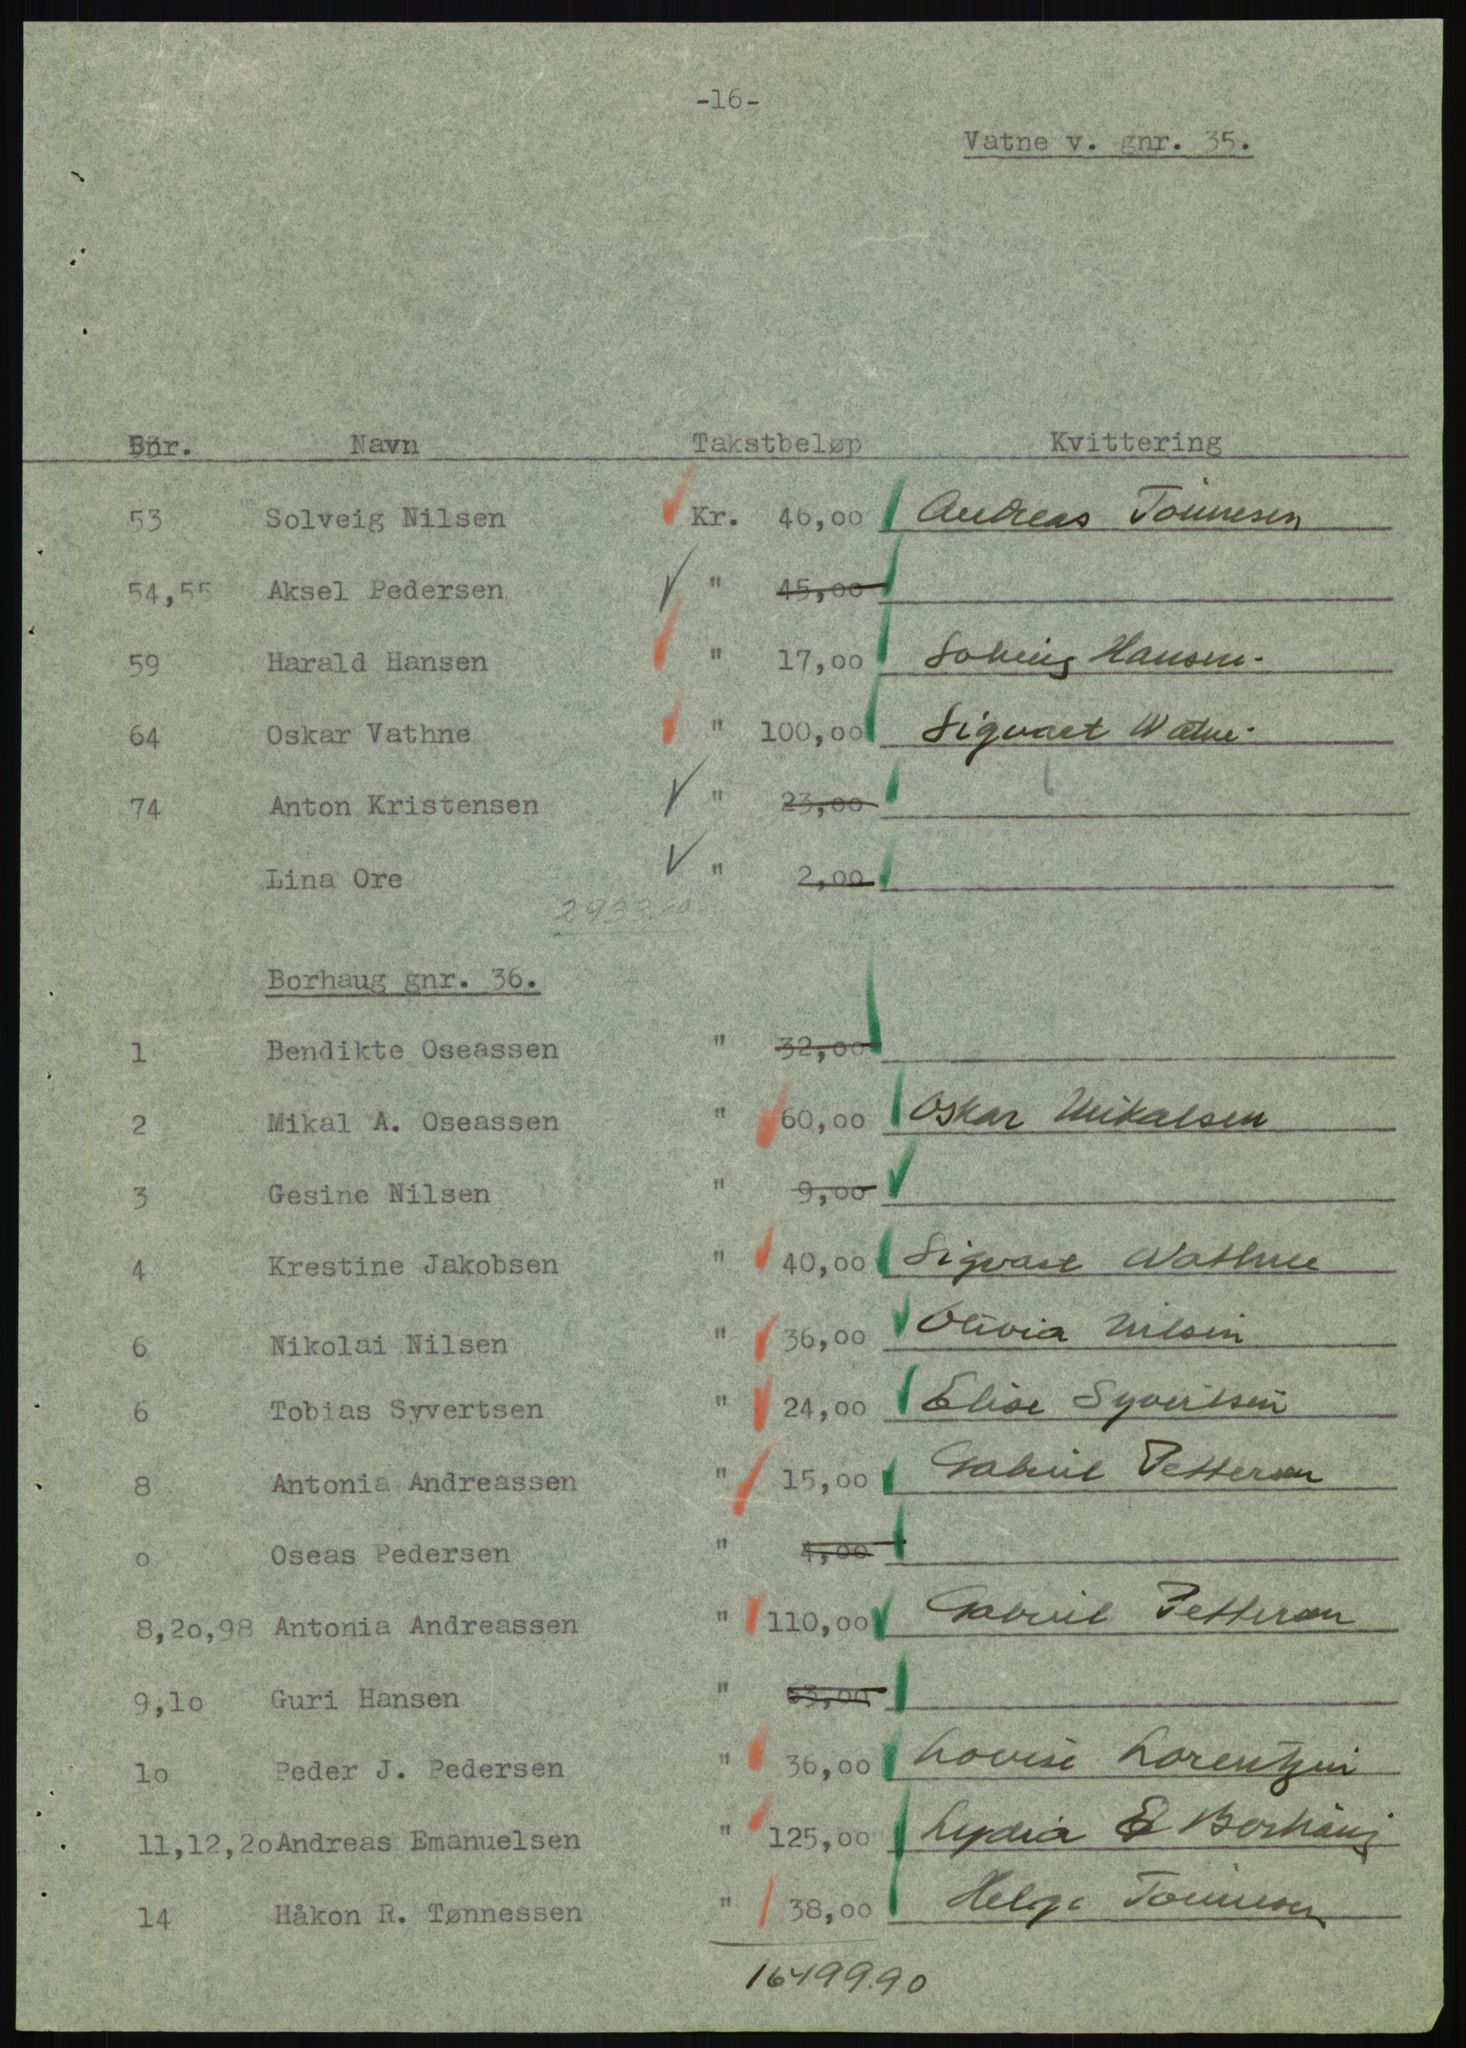 -16-
Vatne v. gnr. 35.
Bnr. Navn Takstbeløp Kvittering
53 Solveig Nilsen Kr. 46,00 Andreas Tönnesen
54,55 Aksel Pedersen " 45,00
59 Harald Hansen " 17,00 Solveig Hansen.
64 Oskar Vathne " 100,00 Sigvart Watne.
74 Anton Kristensen " 23,00
Lina Ore " 2,00
Borhaug gnr. 36.
1 Bendikte Oseassen " 32,00
2 Mikal A. Oseassen " 60,00 Oskar Mikalsen
3 Gesine Nilsen " 9,00
4 Krestine Jakobsen " 40,00 Sigvart Wathne
6 Nikolai Nilsen " 36,00 Olivia Nilsen
6 Tobias Syvertsen " 24,00 Elise Syvertsen
8 Antonia Andreassen " 15,00 Gabriel Pettersen
o Oseas Pedersen " 4,00
8,2o,98 Antonia Andreassen " 110,00 Gabriel Pettersen
9,1o Guri Hansen " 63,00
1o Peder J. Pedersen " 36,00 Lovise Lorentzen
11,12,2o Andreas Emanuelsen " 125,00 Lydia E Borhaug
14 Håkon R. Tønnessen " 38,00 Helge Tönnesen
16499.90